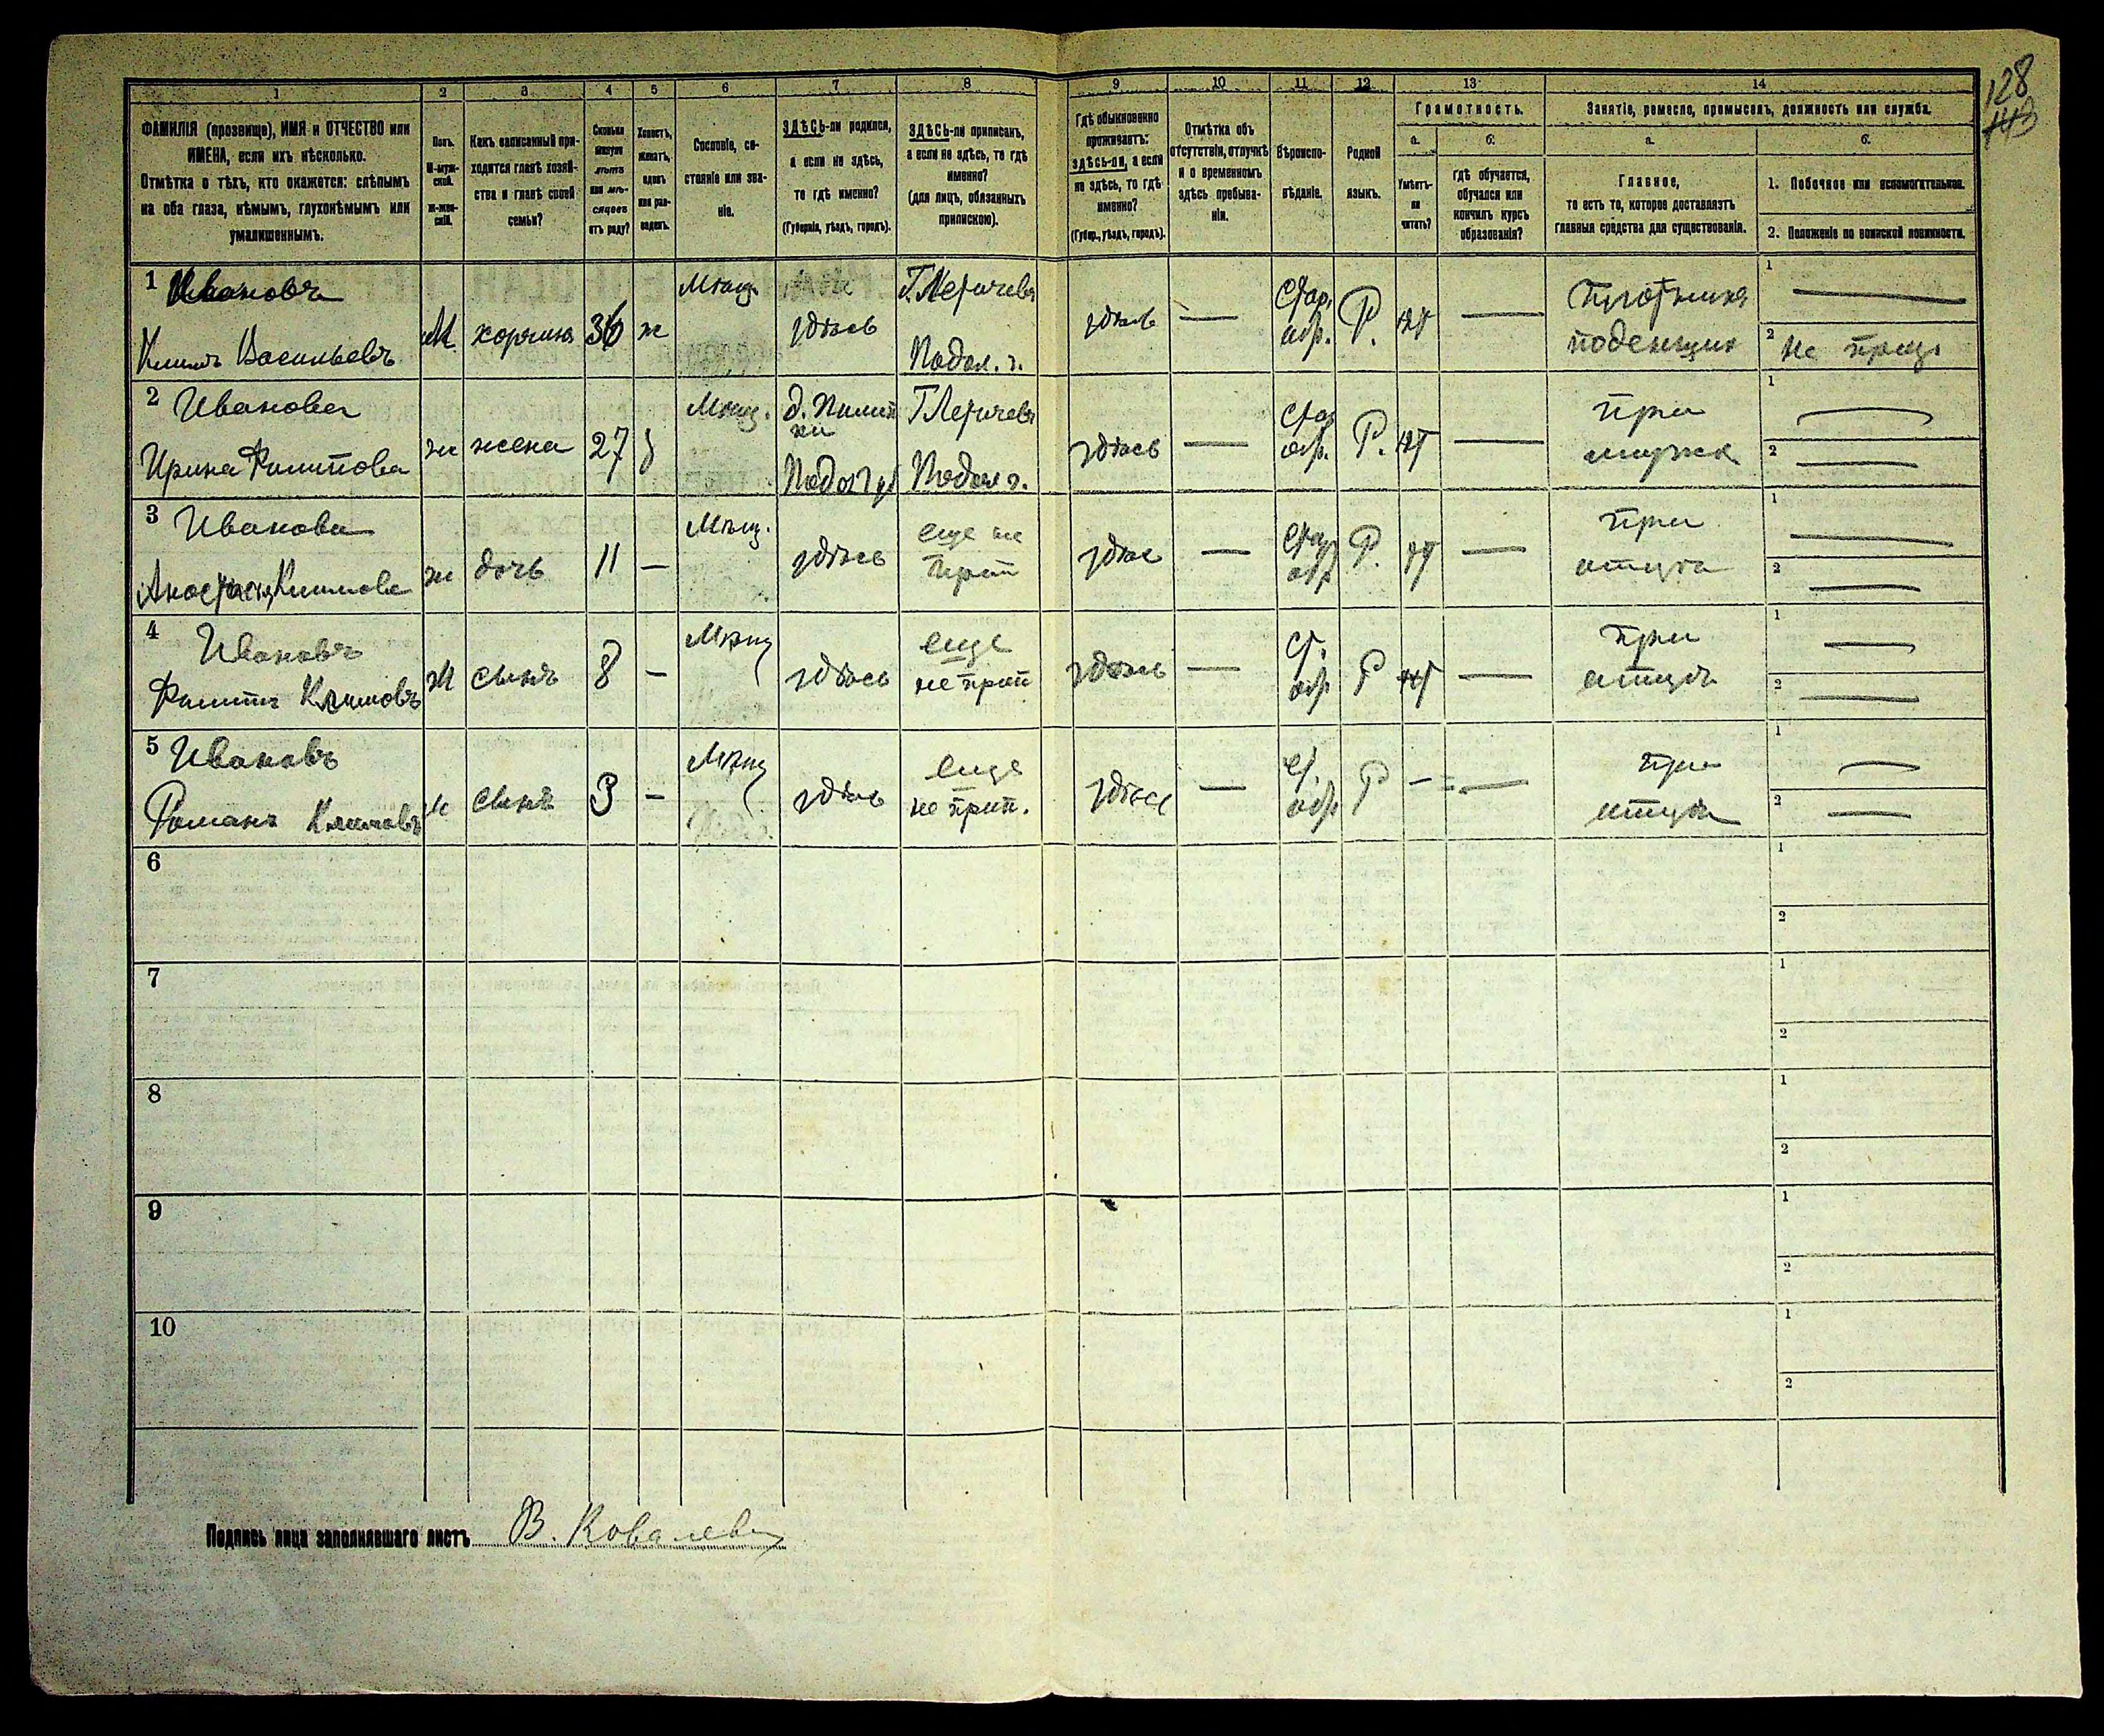 128
1 2 3 4 5 6 7 8 9 10 11 12 13 14
ФАМИЛІЯ (прозвище), ИМЯ и ОТЧЕСТВО или
ИМЕНА, если ихъ нѣсколько.
Отмѣтка о тѣхъ, кто окажется: слѣпымъ
на оба глаза, нѣмымъ, глухонѣмымъ или
умалишеннымъ.
Полъ.
М-муж-
ской.
ж-жен-
скій.
Какъ записанный при-
ходится главѣ хозяй-
ства и главѣ своей
семьи?
Сколько
минуло
лѣтъ
или мѣ-
сяцевъ
отъ роду?
Холостъ,
женатъ,
вдовъ
или раз-
веденъ.
Сословіе, со-
стояніе или зва-
ніе.
ЗДѢСЬ-ли родился,
а если не здѣсь,
то гдѣ именно?
(Губернія, уѣздъ, городъ).
ЗДѢСЬ-ли приписанъ,
а если не здѣсь, то гдѣ
именно?
(для лицъ, обязанныхъ
припискою).
Гдѣ обыкновенно
проживаетъ:
здѣсь-ли, а если
не здѣсь, то гдѣ
именно?
(Губер., уѣздъ, городъ).
Отмѣтка объ
отсутствіи, отлучкѣ
и о временномъ
здѣсь пребыва-
ніи.
Вѣроиспо-
вѣданіе.
Родной
языкъ.
Грамотность.
а.
Умѣетъ-
ли
читать?
б.
гдѣ обучается,
обучался или
кончилъ курсъ
образованія?
Занятіе, ремесло, промыселъ, должность или служба.
а.
Главное,
то есть то, которое доставляетъ
главныя средства для существованія.
б.
1. Побочное или вспомогательное.
2. Положеніе по воинской повинности.
1 Ивановъ Мѣщ. Г. Летичевъ Стар. плотникъ 1
Климъ Васильевъ М хозяинъ 36 ж здѣсь Подол. г. здѣсь — обр. Р. нѣт — поденщик 2 не приз.
2 Иванова Мѣщ. д. Пилип Г Летичевъ Стар при 1
ки
Ирина Филипова ж жена 27 з Подол г Подол г. здѣсь — обр. Р. нѣт — мужѣ 2
3 Иванова Мѣщ. еще не Стар при 1
Анастасія Климова ж дочь 11 — здѣсь прип здѣс — обр Р. нѣт — отцѣ 2
4 Ивановъ Мѣщ еще ст. при 1
Филипъ Климовъ М сынъ 8 — здѣсь не прип здѣсь — обр Р нѣт — отцѣ 2
5 Ивановъ Мѣщ еще ст. при 1
Романъ Климовъ М сынъ 3 — здѣсь не прип. здѣсь — обр Р — — отцѣ 2
6 1
2
7 1
2
8 1
2
9 1
2
10 1
2
Подпись лица заполнявшаго листъ В. Ковалев